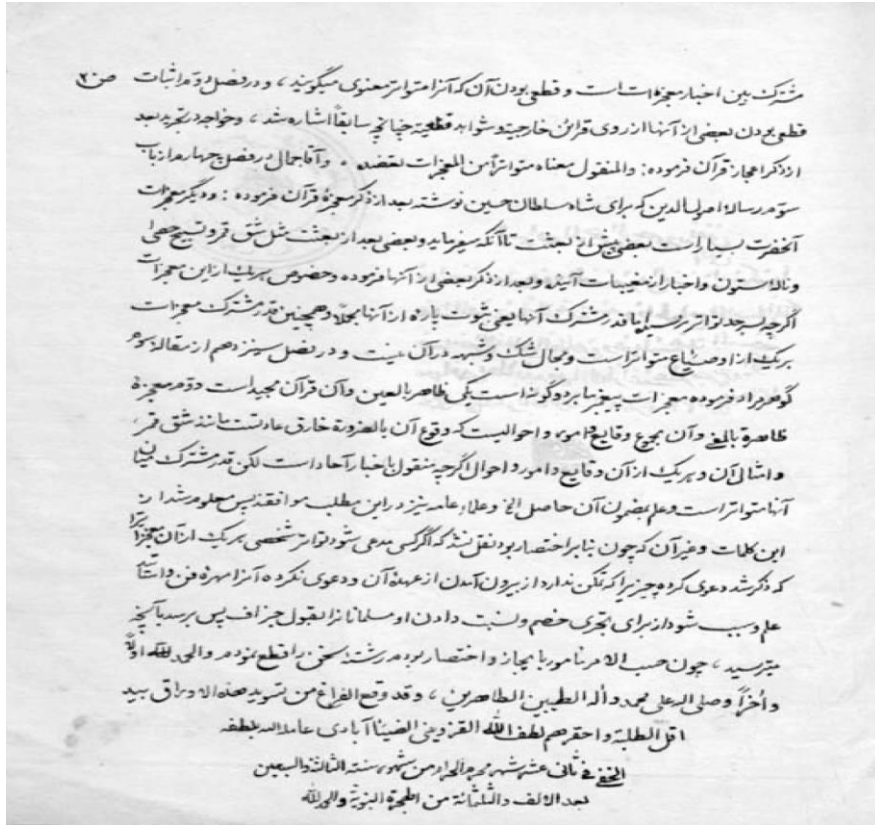 مشترک بین اخبار معجزه است و قطعی بودن آن که آنرا متواتر معنوی میگویند، و در فصل دوم اثبات ص ۲۰
قطعی بودن بعضی از آنها از روی قرائن خارجیه و شواهد قطعیه چنانچه سابقاً اشاره شد، و خواجه در تجرید بعد
از ذکر اعجاز قرآن فرموده: والمنقول معناه متواتراً من المعجزات یعضده. و آقا جمال در فصل چهارم از باب
سوم رساله اصول الدین که برای شاه سلطان حسین نوشته بعد از ذکر معجزهٔ قرآن فرموده: و دیگر معجزات
آنحضرت بسیار است بعضی پیش از بعثت تا آنکه میفرماید و بعضی بعد از بعثت مثل شق قمر و تسبیح حصی
و ناله ستون و اخبار از مغیبات آینده و بعد از ذکر بعضی از آنها فرموده و خصوص هر یک از این معجزات
اگرچه بسر حد تواتر نرسیده اما قدر مشترک آنها یعنی ثبوت پاره از آنها مجملاً و همچنین قدر مشترک معجزات
هر یک از اوصیاع متواتر است و مجال شک و شبهه در آن نیست و در فصل سیزدهم از مقالهٔ سوم
گوهر مراد فرموده معجزات پیغمبر ما بر دو گونه است یکی ظاهر بالعین و آن قرآن مجید است دوم معجزهٔ
ظاهرة بالمعنی و آن مجموع وقایع و امور و احوالیست که وقوع آن بالضرورة خارق عادتست مانند شق قمر
و امثال آن و هر یک از آن وقایع و امور و احوال اگرچه منقول باخبار آحاد است لکن قدر مشترک میان
آنها متواتر است و علم بمضمون آن حاصل الخ و علماء عامه نیز در این مطلب موافقند پس معلوم شد از
این کلمات و غیر آن که چون بنا بر اختصار بود نقل نشد که اگر کسی مدعی شود تواتر شخصی هر یک از آن معجزاترا
که ذکر شد دعوی کرده چیزیرا که تمکن ندارد از بیرون آمدن از عهدهٔ آن و دعوی نکرده آنرا مهرهٔ فن و اساتید
علم و سبب شود از برای تجری خصم و نسبت دادن او مسلمانانرا بقول جزاف پس برسد بآنچه
میترسید، چون حسب الامر مأمور بایجاز و اختصار بودم رشتهٔ سخن را قطع نمودم والحمد لله اولاً
و آخراً و صلی الله علی محمد و آله الطیبین الطاهرین، و قد وقع الفراغ من تسوید هذه الاوراق بید
اقل الطلبة و احقرهم لطف الله القزوینی الضیاآبادی عامله الله بلطفه
الخفی فی ثانی عشر شهر محرم الحرام من شهور سنة الثالثة والسبعین
بعد الالف والثلثمائة من الهجرة النبویة والحمد لله